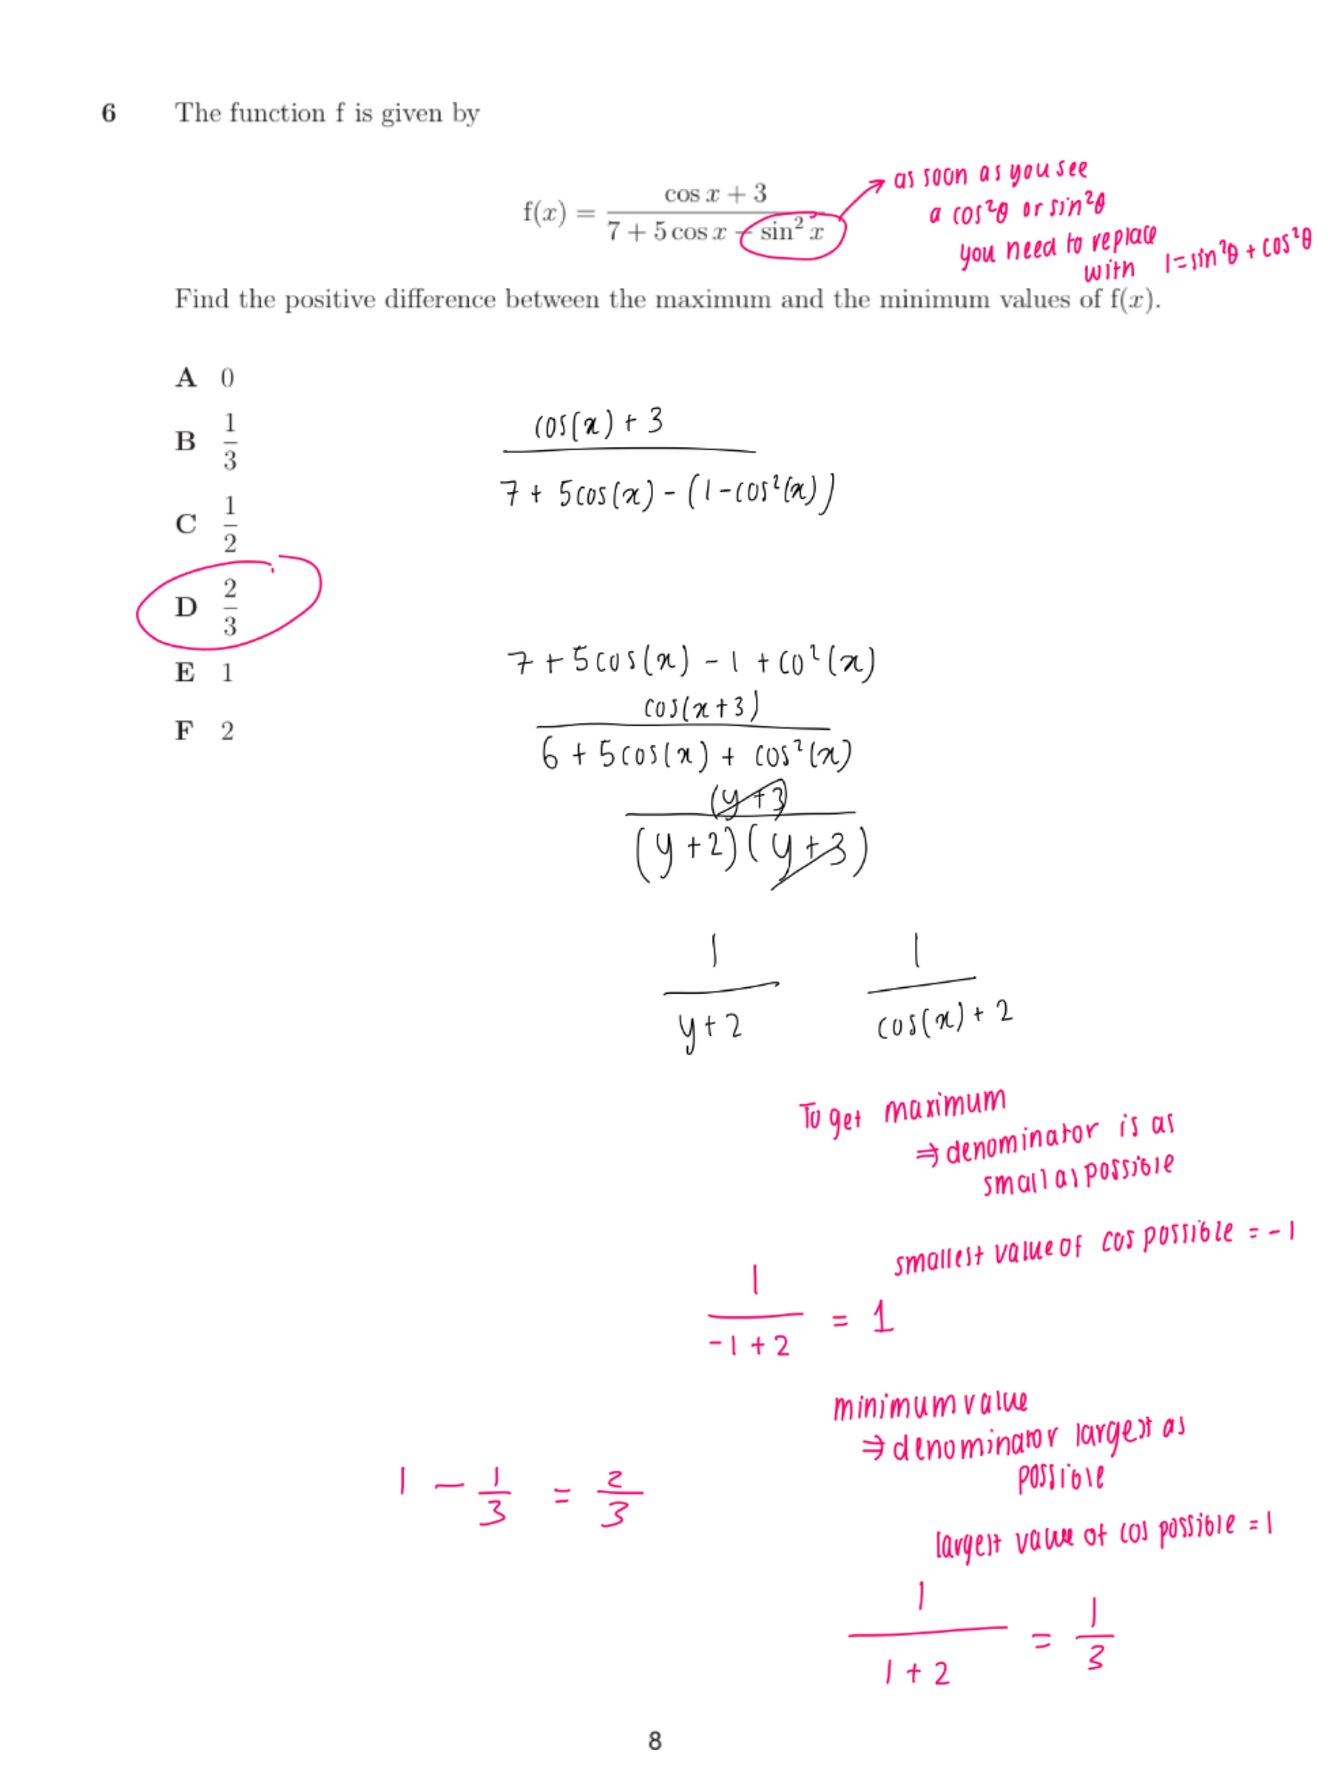 6 The function f is given by
f(x) = (cos x + 3)/(7 + 5 cos x − sin² x)
as soon as you see
a cos²θ or sin²θ
you need to replace
with 1=sin²θ + cos²θ
Find the positive difference between the maximum and the minimum values of f(x).
A 0
B 1/3
C 1/2
D 2/3
E 1
F 2
cos(x) + 3
7 + 5cos(x) - (1-cos²(x))
7 + 5cos(x) - 1 + co²(x)
cos(x+3)
6 + 5cos(x) + cos²(x)
(y+3)
(y+2)(y+3)
1/(y+2) 1/(cos(x)+2)
To get maximum
⇒ denominator is as
small as possible
smallest value of cos possible = -1
1/(-1+2) = 1
minimum value
⇒ denominator largest as
possible
largest value of cos possible = 1
1/(1+2) = 1/3
1 - 1/3 = 2/3
8